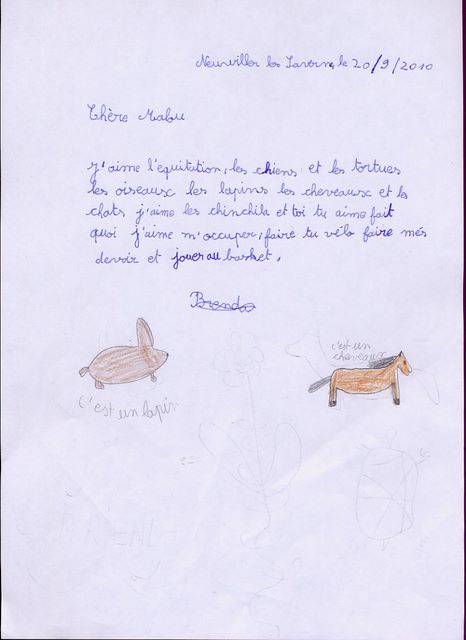 Neuwiller les Saverne, le 20/9/2010
Chère Malou
J'aime l'equitution, les chiens et les tortues
les oiseaux les lapins les cheveaux et les
chats j'aime les chinchila et toi tu aime fait
quoi j'aime m'occuper, faire tu vélo faire més
devoir et jouer au basket.
Brenda
c'est un
cheveaux
C'est un lapin